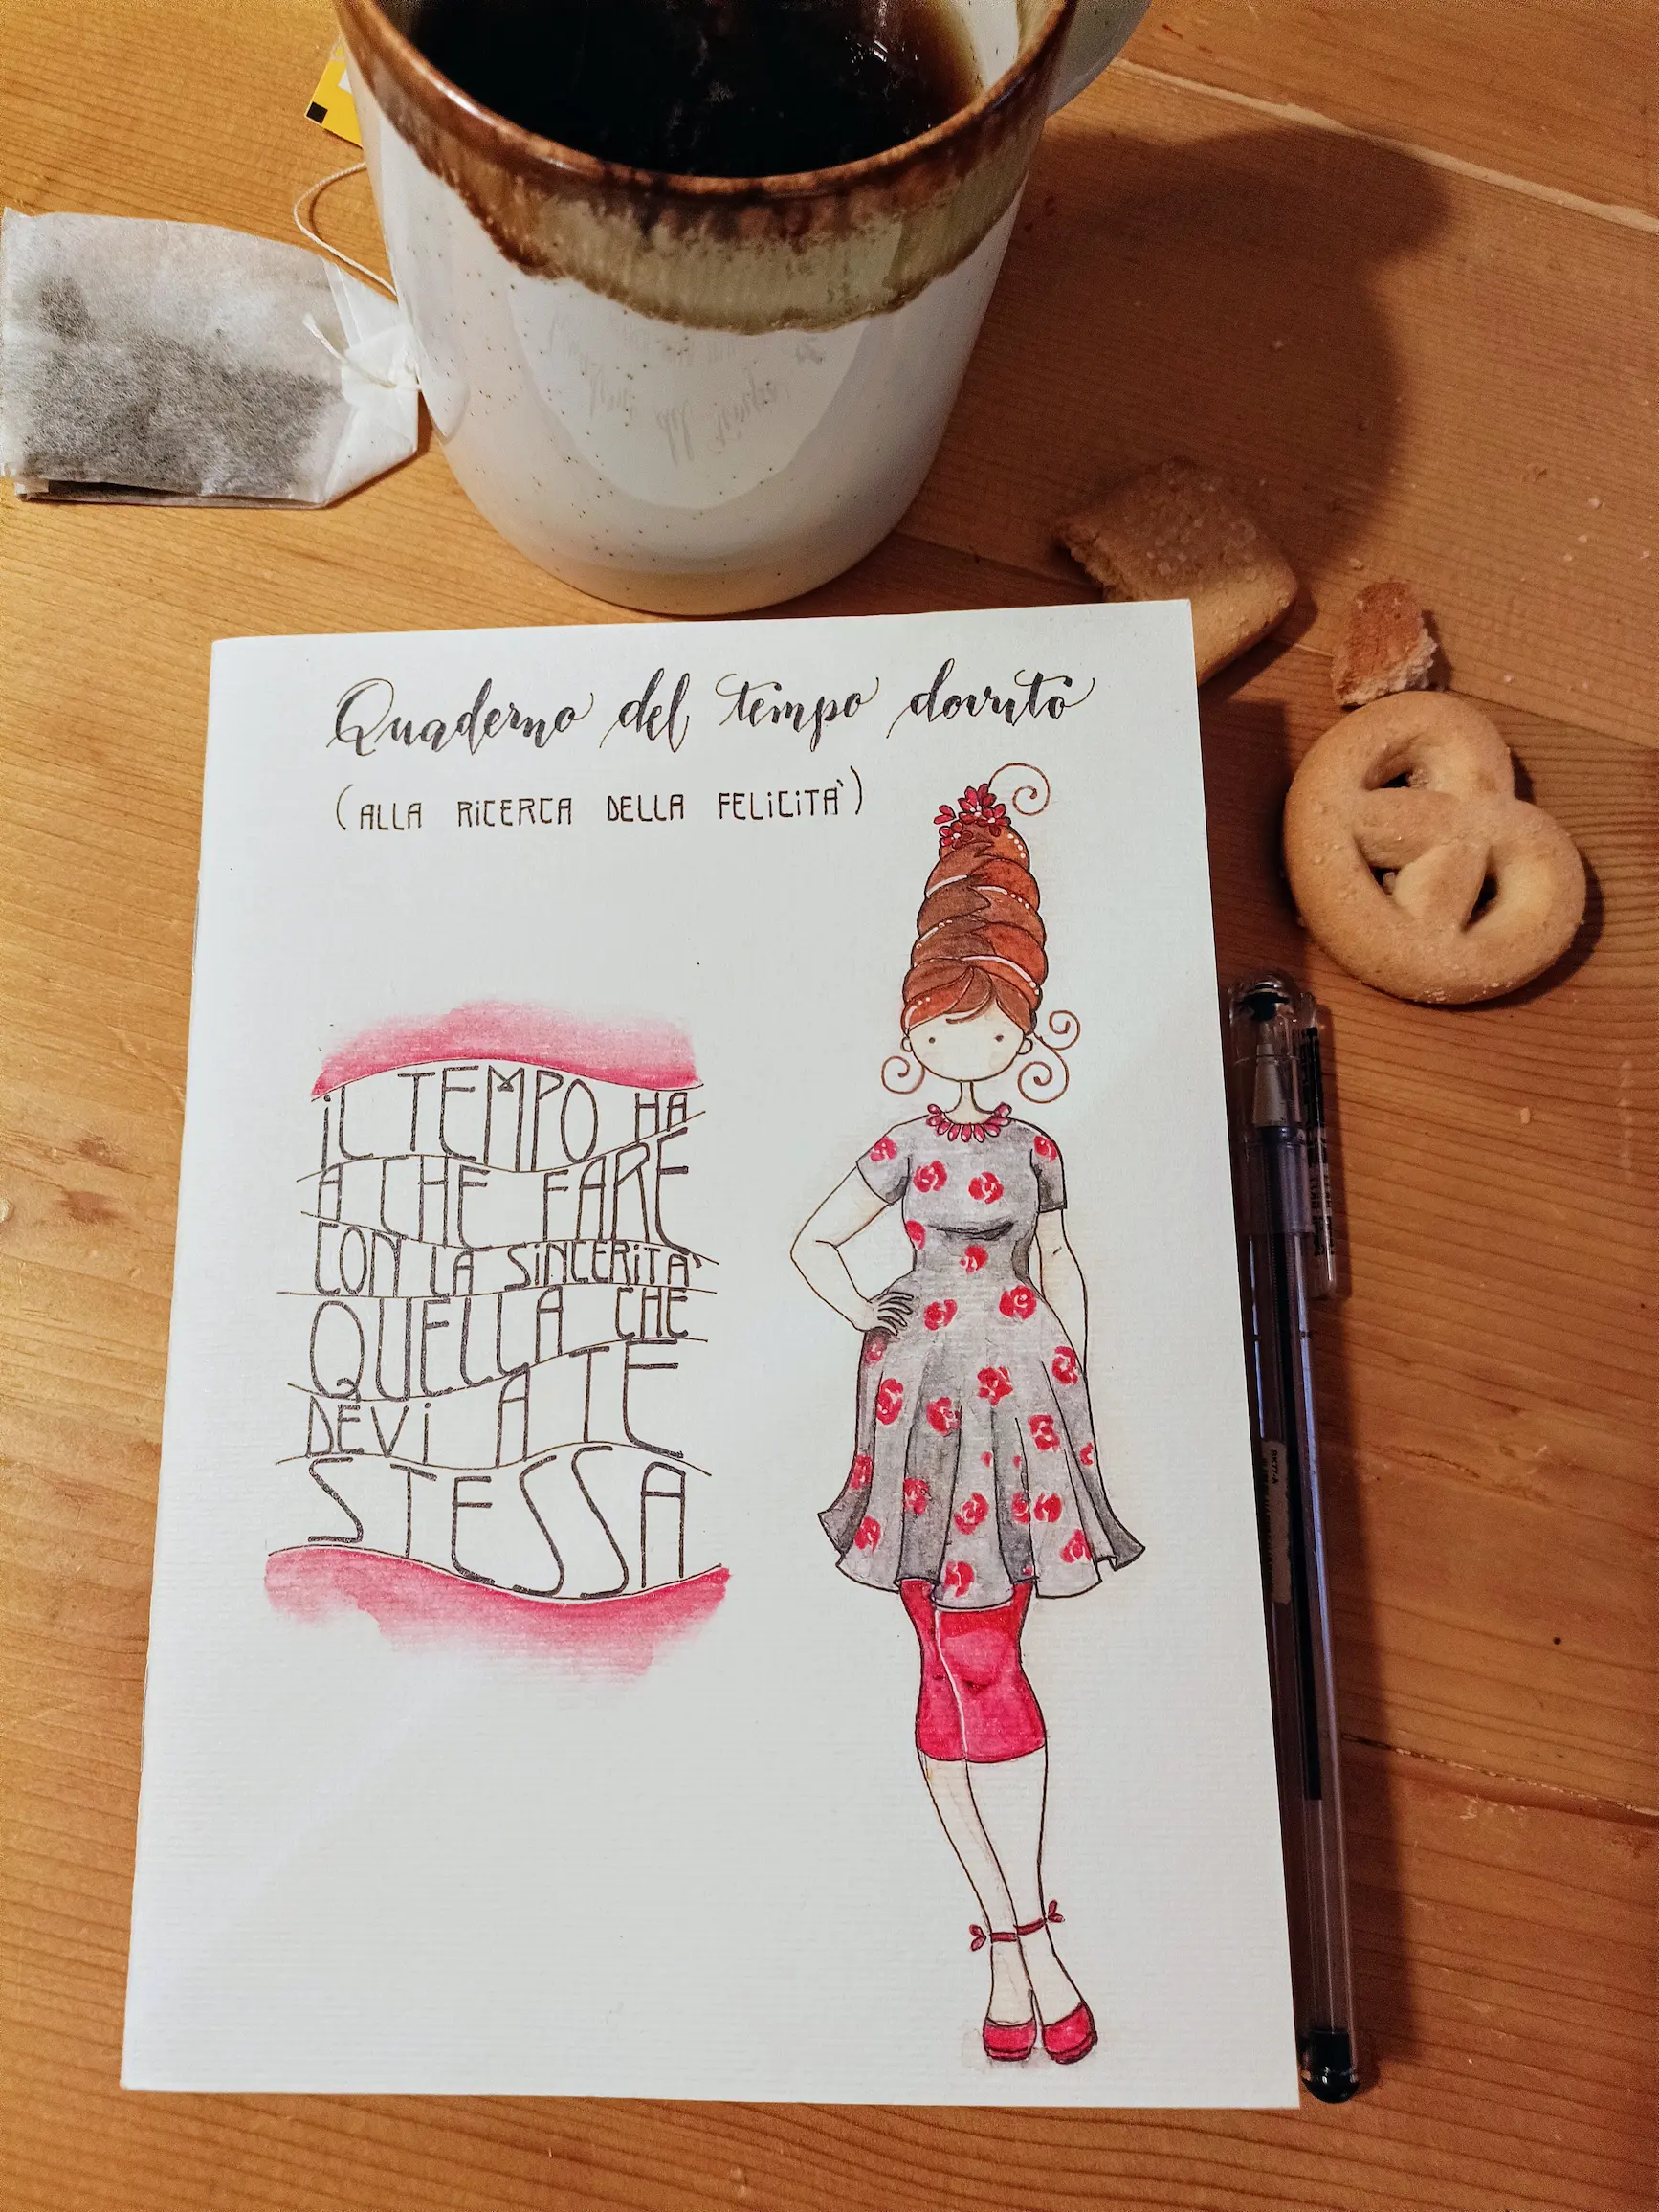 Quaderno del tempo dovuto
(ALLA RiCERCA DELLA FELiCiTA')
iL TEMPO HA
A CHE FARE
CON LA SiNCERiTA'
QUELLA CHE
DEVi A TE
STESSA